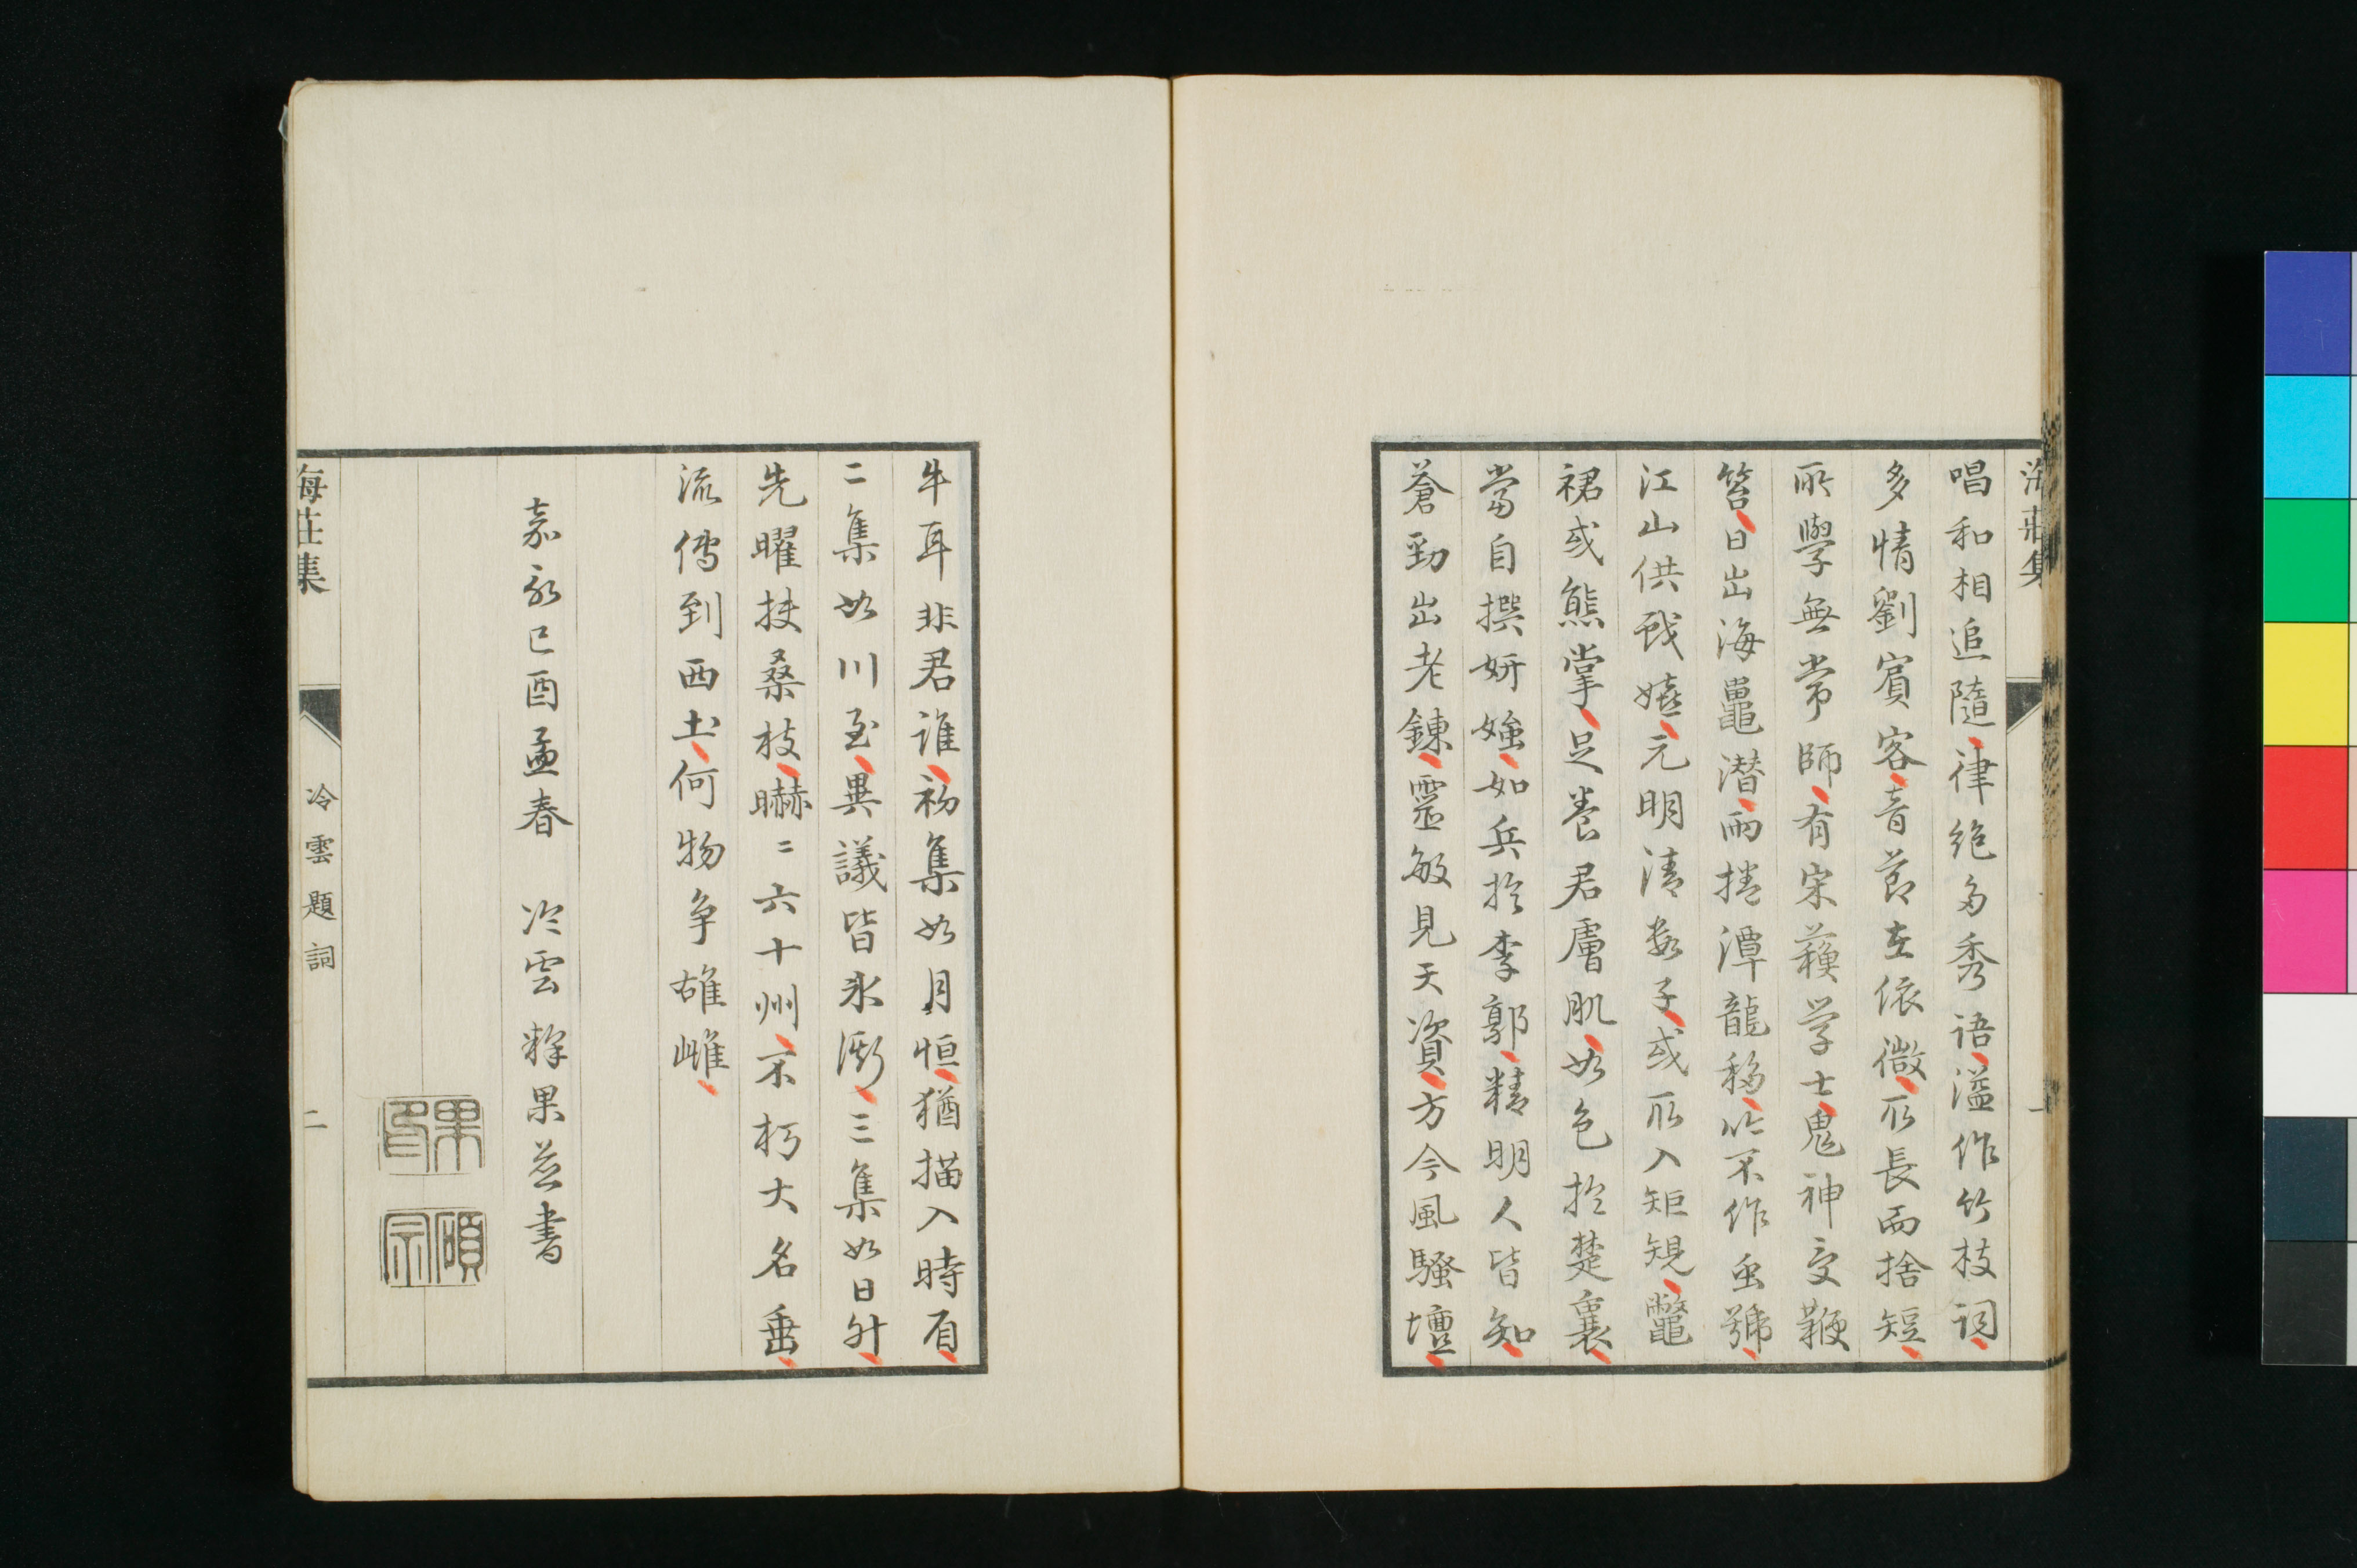 海莊集
一
唱和相追隨律絶多秀語溢作竹枝詞
多情劉賓客音節在依微所長而捨短
所學無常師有宋蘓学士鬼神受鞭
笞日出海鼉潜雨捲潭龍移吟不作虫號
江山供戯嬉元明清数子或所入矩規鼈
裙或熊掌足養君膚肌如色於楚裏
當自撰妍媸如兵於李郭精明人皆知
蒼勁出老錬靈敏見天資方今風騷壇
牛耳非君誰初集如月恒猶描入時眉
二集如川至異議皆氷澌三集如日升
先曜扶桑枝曦〻六十州不朽大名垂
流傳到西土何物争雄雌
嘉永己酉孟春 冷雲釋果並書
果印
碩宗
海莊集
冷雲題詞
二